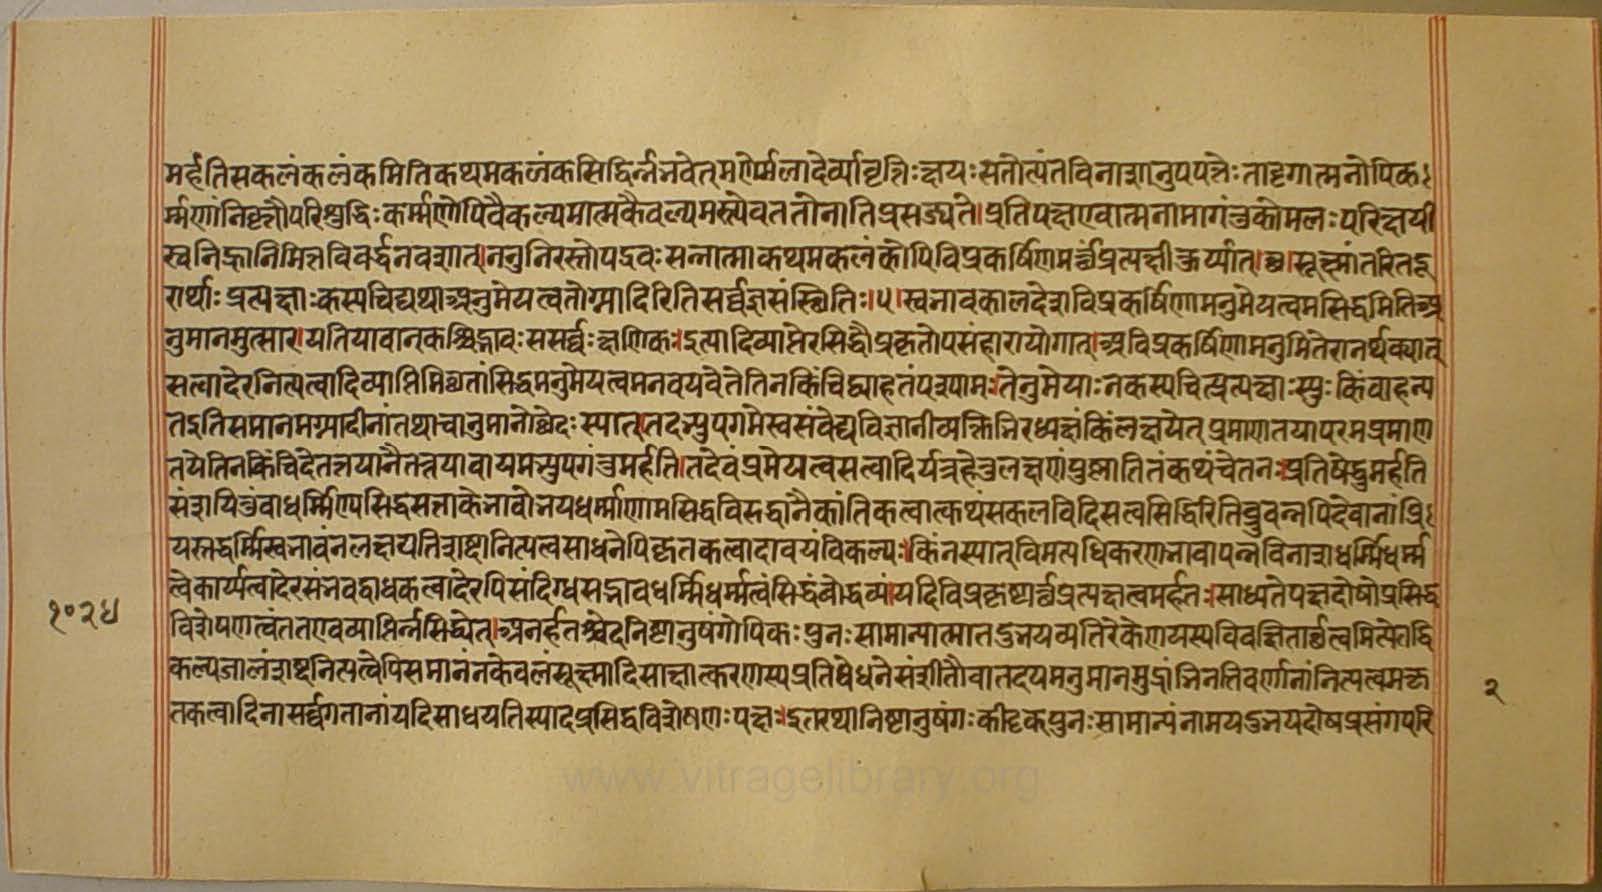 मर्हतिसकलंकलंकमितिकथमकलंकसिद्धिर्न्नभवेत्मणेर्म्मलादेर्व्यावृत्तिःक्षयःसतोत्यंतविनाशानुपपत्तेःतादृगात्मनोपिकः
र्म्मणांनिवृत्तौपरिशुद्धिःकर्म्मणोपिवैकल्यमात्मकैवल्यमस्त्येवततोनातिप्रसज्यते।प्रतिपक्षएवात्मनामागंतुकोमलःपरिक्षयी
स्वनिर्ह्रानिमित्तविवर्द्धनवशात्।ननुनिरस्तोपद्रवःसन्नात्माकथमकलंकोपिविप्रकर्षिणमर्थंप्रत्यक्षीकुर्य्यात्।छ।सूक्ष्मांतरितदू
रार्थाःप्रत्यक्षाःकस्यचिद्यथाअनुमेयत्वतोग्न्यादिरितिसर्व्वज्ञसंस्थितिः।५।स्वभावकालदेशविप्रकर्षिणामनुमेयत्वमसिद्धमितिअ
नुमानमुत्सार।यतियावान्कश्चिद्भावःससर्व्वःक्षणिकः।इत्यादिव्याप्तेरसिद्धौप्रकृतोपसंहारायोगात्।अविप्रकर्षिणामनुमितेरानर्थक्यात्
सत्वादेरनित्यत्वादिव्याप्तिमिच्छतांसिद्धमनुमेयत्वमनवयवेनेतिनकिंचिद्व्याहतंपश्यामः।तेनुमेयाःनकस्यचित्प्रत्यक्षाःस्युःकिंवाहन्य
तेइतिसमानमग्न्यादीनांतथाचानुमानोच्छेदःस्यात्।तदभ्युपगमेस्वसंवेद्यविज्ञानीव्यक्तिभिरध्यक्षंकिंलक्षयेत्प्रमाणतयापरमप्रमाण
तयेतिनकिंचिदेतत्तयानैतत्तयावायमभ्युपगंतुमर्हति।तदेवंप्रमेयत्वसत्वादिर्यत्रहेतुलक्षणंपुष्णातितंकथंचेतनःप्रतिषेद्धुमर्हति
संशयितुंवाधर्म्मिण्यसिद्धसत्ताकेभावोभयधर्म्माणामसिद्धविरुद्धानैकांतिकत्वात्कथंसकलविदिसत्वसिद्धिरितिब्रुवन्नपिदेवानांप्रिः
यस्तद्धर्म्मिस्वभावंनलक्षयतिशब्दानित्यत्वसाधनेपिकृतकत्वादावयंविकल्पः।किंनस्यात्विमत्यधिकरणभावापन्नविनाशधर्म्मिधर्म्म
त्वेकार्य्यत्वादेरसंभवद्बाधकत्वादेरपिसंदिग्धसद्भावधर्म्मिधर्म्मत्वंसिद्धंबोद्धव्यं।यदिविप्रकृष्टार्थप्रत्यक्षत्वमर्हतः।साध्यतेपक्षदोषोप्रसिद्ध
विशेषणत्वंततएवव्याप्तिर्न्नसिद्ध्येत्।अनर्हतश्चेदनिष्टानुषंगोपिकःपुनःसामान्यात्मातदुभयव्यतिरेकेणयस्यविवक्षितार्थत्वमित्येतद्वि
कल्पजालंशब्दनित्यत्वेपिसमानंनकेवलंसूक्ष्मादिसाक्षात्करणस्यप्रतिषेधनेसंशीतौवातदयमनुमानमुद्रांभिनत्तिवर्णानांनित्यत्वमकृ
तकत्वादिनासर्व्वगतानांयदिसाधयतिस्यादप्रसिद्धविशेषणःपक्षः।इतरथानिष्टानुषंगःकीदृक्पुनःसामान्यंनामयदुभयदोषप्रसंगपरि
१०२४
२
www.vitragelibrary.org